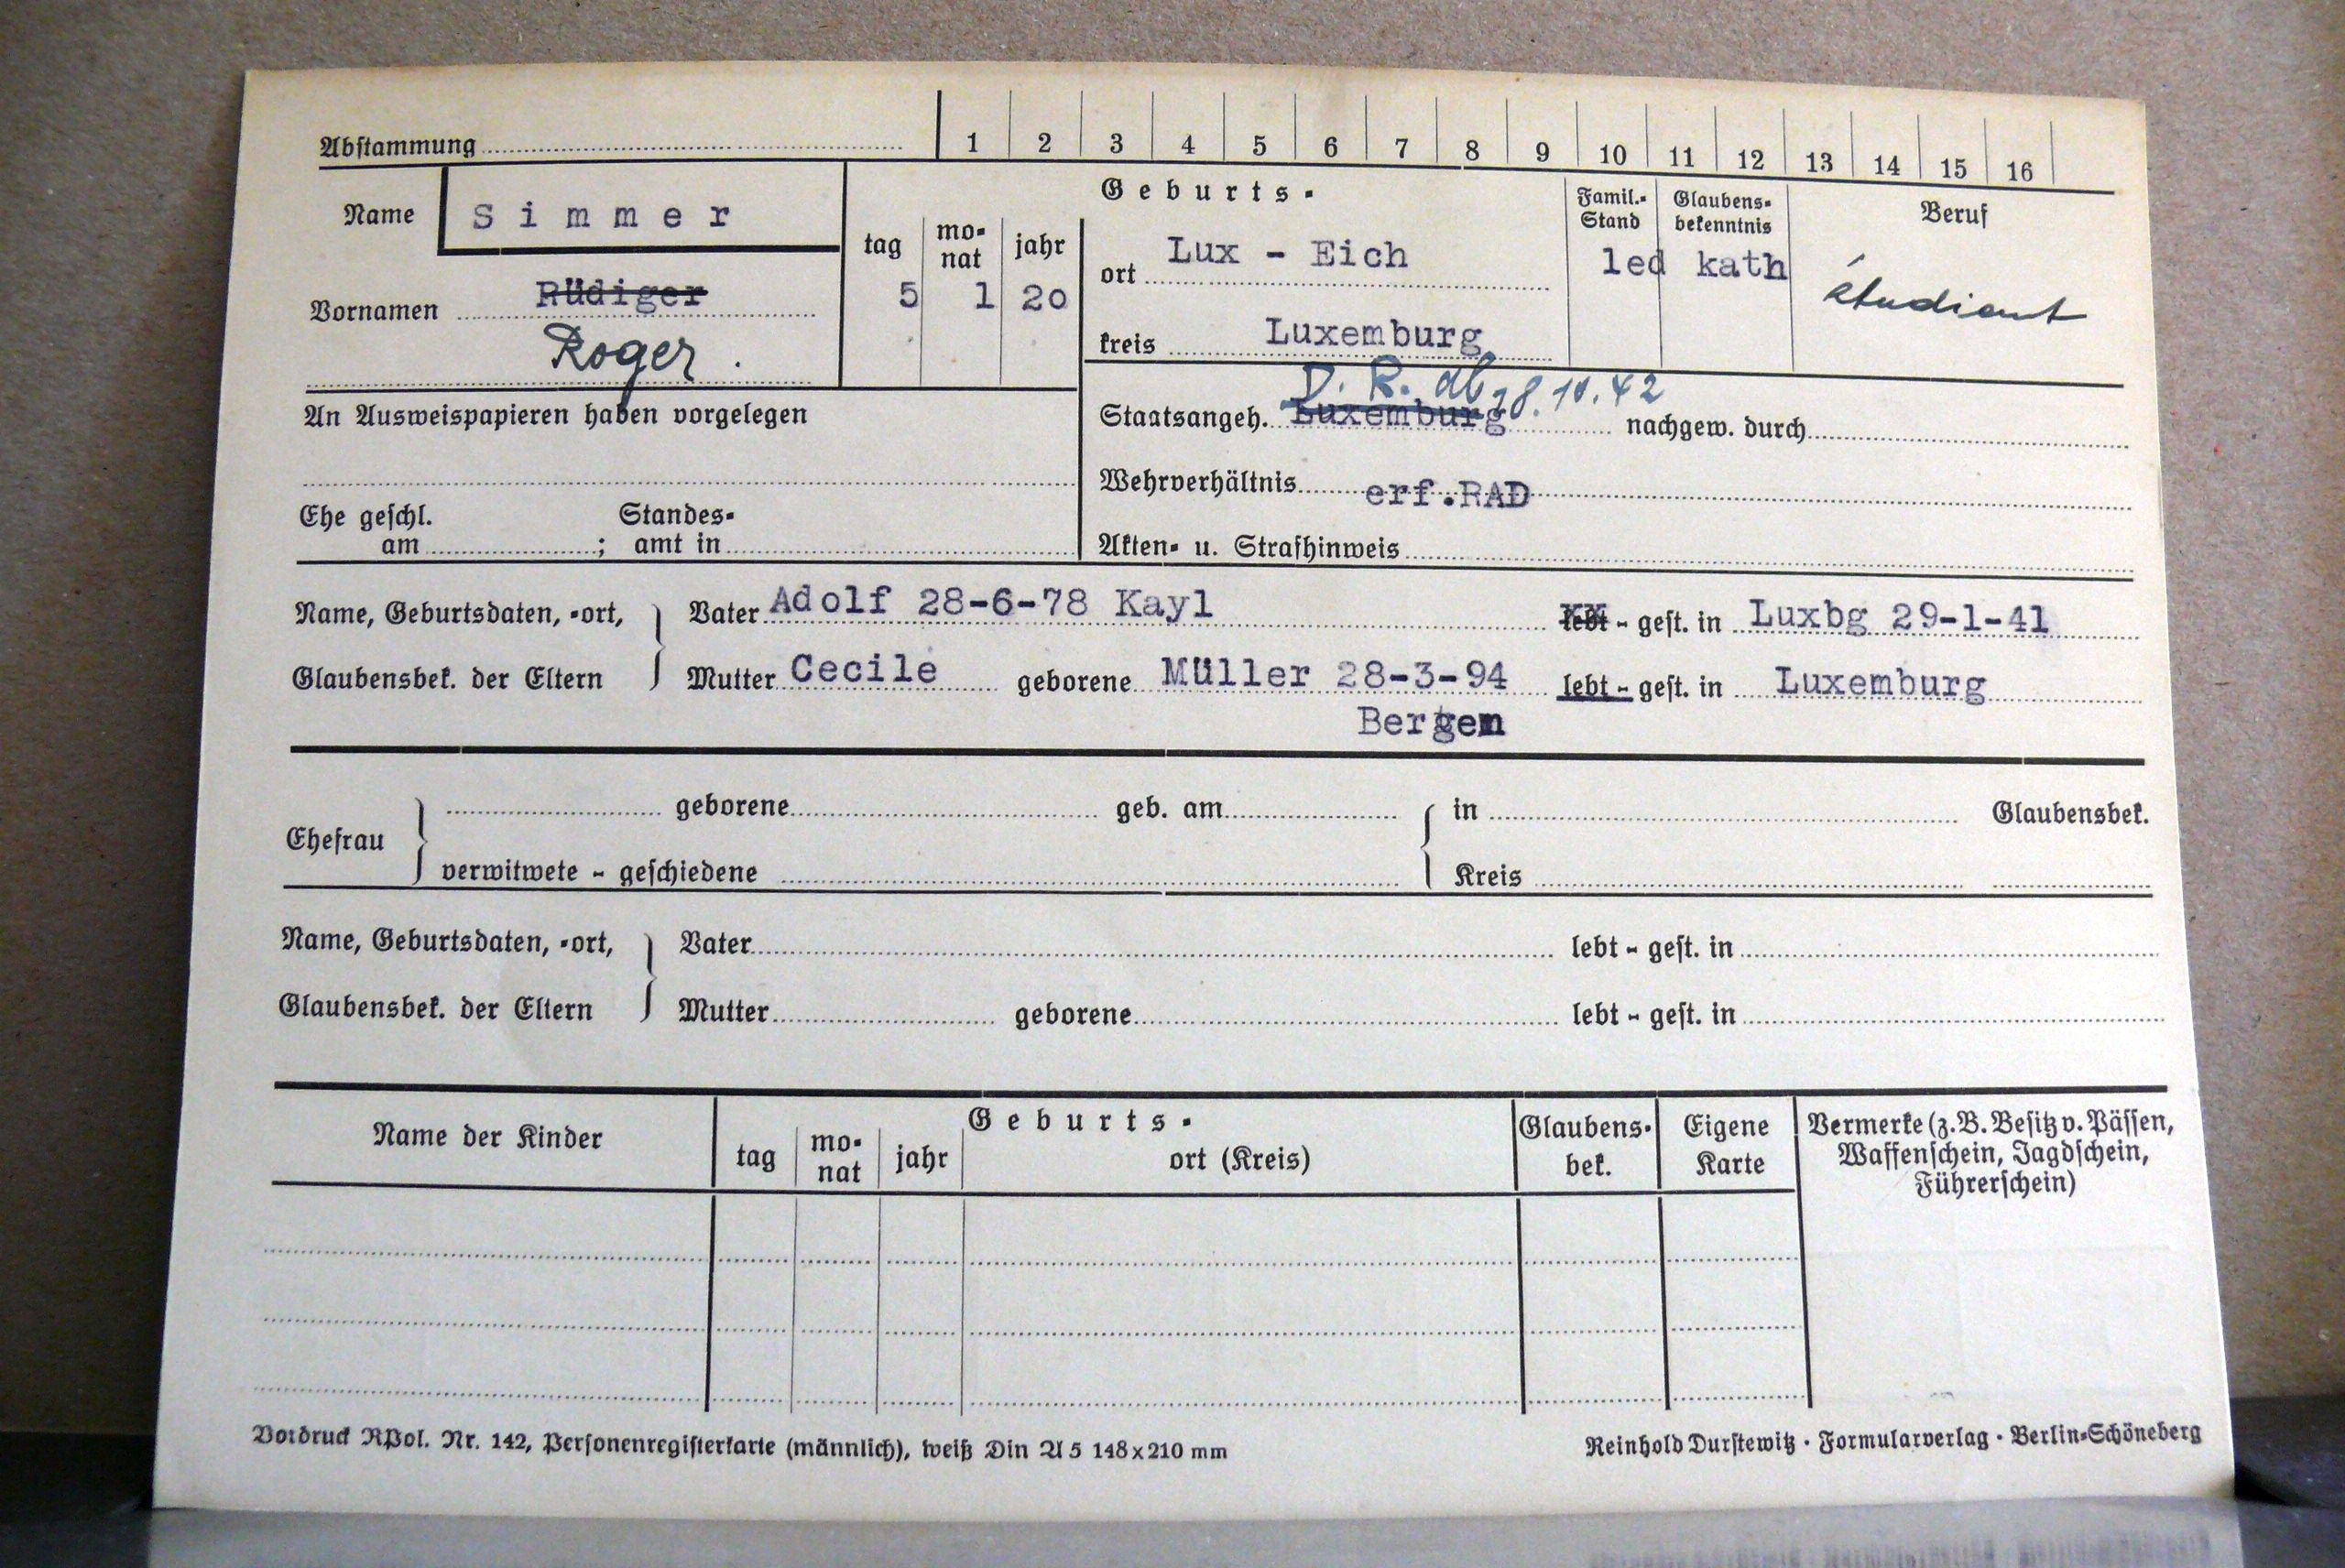 Abstammung 1 2 3 4 5 6 7 8 9 10 11 12 13 14 15 16
Name Simmer
Vornamen Rüdiger
Roger.
Geburts-
tag monat jahr
5 1 20
ort Lux - Eich
kreis Luxemburg
Famil.-Stand
led
Glaubensbekenntnis
kath
Beruf
étudiant
An Ausweispapieren haben vorgelegen
D. R. ab 28.10.42
Staatsangeh. Luxemburg nachgew. durch
Wehrverhältnis erf.RAD
Ehe geschl. am ; Standesamt in
Akten- u. Strafhinweis
Name, Geburtsdaten, -ort, Vater Adolf 28-6-78 Kayl lebt - gest. in Luxbg 29-1-41
Glaubensbek. der Eltern Mutter Cecile geborene Müller 28-3-94 lebt - gest. in Luxemburg
Bergem
Ehefrau geborene geb. am in Glaubensbek.
verwitwete - geschiedene Kreis
Name, Geburtsdaten, -ort, Vater lebt - gest. in
Glaubensbek. der Eltern Mutter geborene lebt - gest. in
Name der Kinder
Geburts-
tag monat jahr ort (Kreis)
Glaubensbek.
Eigene Karte
Vermerke (z. B. Besitz v. Pässen,
Waffenschein, Jagdschein,
Führerschein)
Vordruck RPol. Nr. 142, Personenregisterkarte (männlich), weiß Din A 5 148x210 mm
Reinhold Durstewitz · Formularverlag · Berlin-Schöneberg